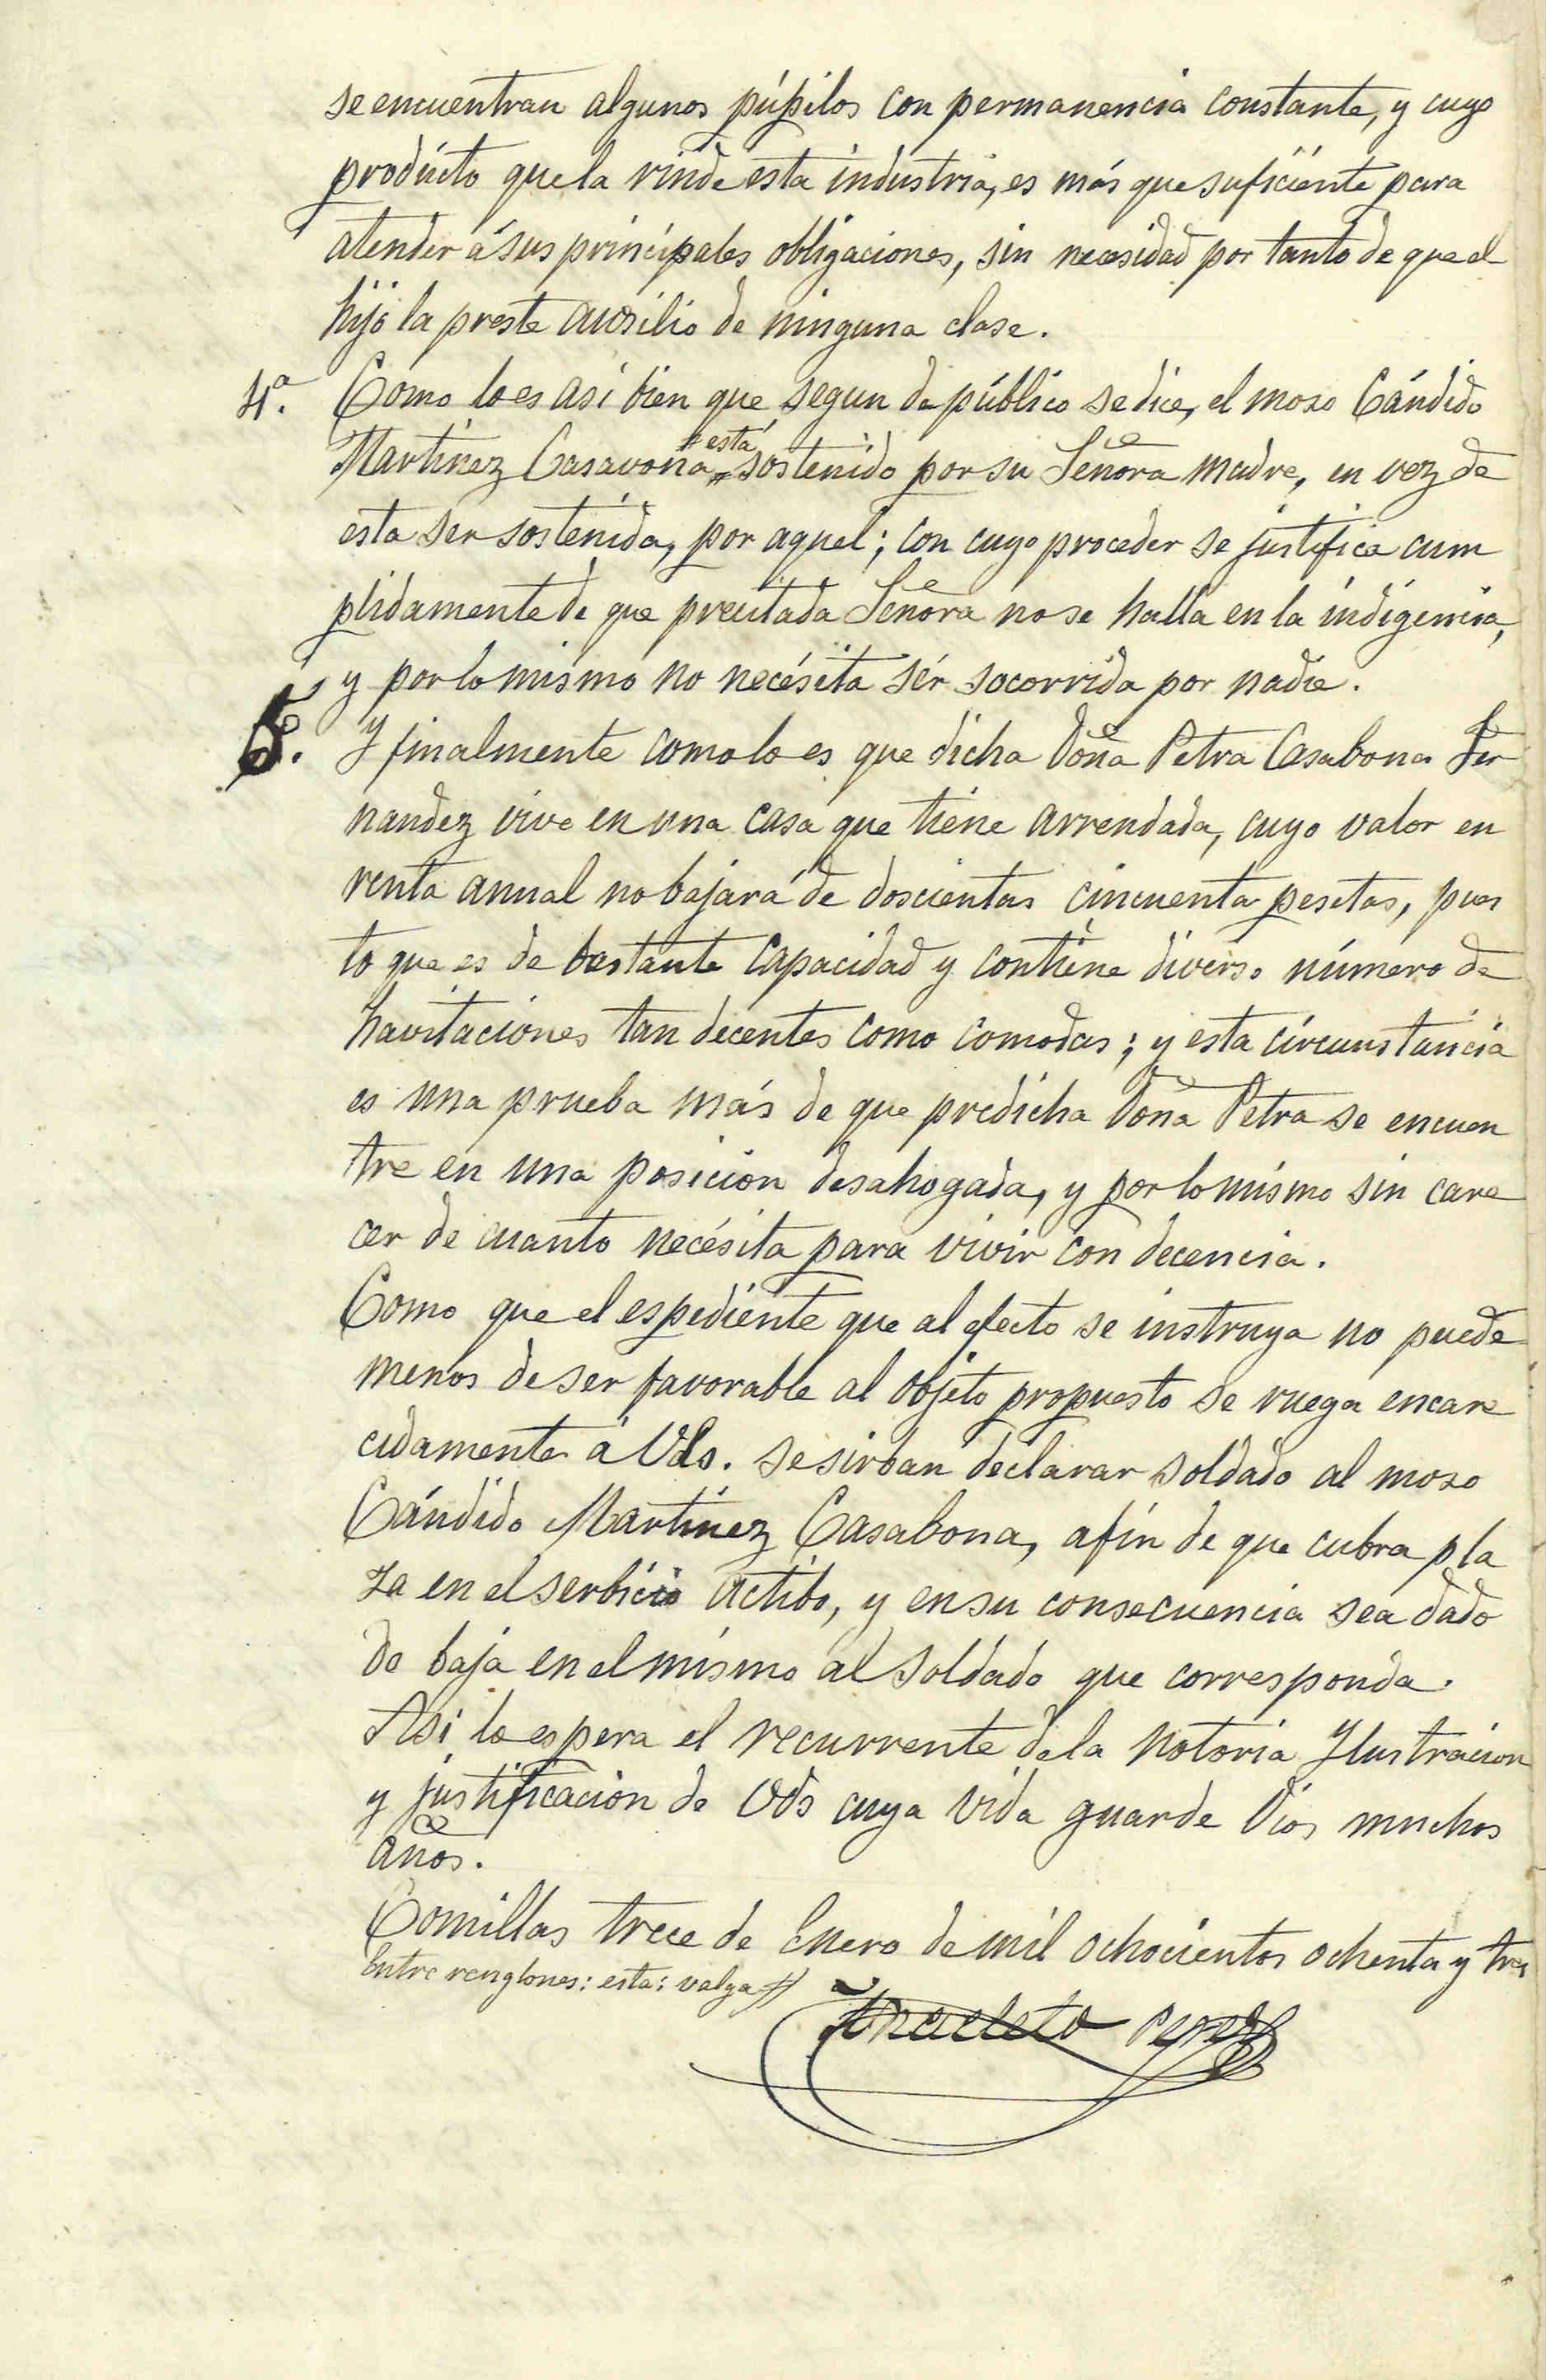 se encuentran algunos púpilos con permanencia constante, y cuyo
prodúcto que la rinde esta industria, es más que suficiente para
atender á sus principales obligaciones, sin necesidad por tanto de que el
hijo la preste ausilio de ninguna clase.
4ª. Como lo es asi bien que segun de público se dice, el moso Cándido
Martinez Casavona "está" sostenido por su Señora madre, en vez de
esta ser sostenida, por aquel; con cuyo proceder se justifica cum
plidamente de que precitada Señora no se halla en la indigencia,
y por lo mismo no necésita sér socorrida por nadie.
5ª. Y finalmente como lo es que dicha Doña Petra Casabona Fer
nandez vive en una casa que tiene arrendada, cuyo valor en
renta anual no bajará de doscientas cincuenta pesetas, pues
to que es de bastante capacidad y contiene diverso número de
havitaciones tan decentes como comodas; y esta circunstancia
es una prueba más de que predicha Doña Petra se encuen
tre en una posicion desahogada, y por lo mismo sin care
cer de cuanto necésita para vivir con decencia.
Como que el espediente que al efecto se instruya no puede
menos de ser favorable al objeto propuesto se ruega encare
cidamente á Vds. se sirban declarar soldado al moso
Cándido Martinez Casabona, afin de que cubra pla
za en el serbicio actibo, y en su consecuencia sea dado
de baja en el mismo al soldado que corresponda.
Asi lo espera el recurrente de la notoria Ylustracion
y justificacion de Vds cuya vida guarde Dios muchos
años.
Comillas trece de Enero de mil ochocientos ochenta y tres
Entre renglones: esta: valga//
Anacleto Perez